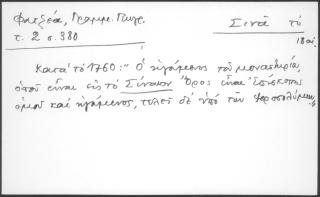 Φατζέα, Γραμμ. Γεωγρ.
τ. 2 σ. 380
Σινᾶ τό
18 αἰ.
Κατά τό 1760: "Ὁ ἡγούμενος τοῦ μοναστηρίου,
ὁποῦ εἶναι εἰς τό Σίναιον Ὄρος εἶναι Ἐπίσκοπος
ὁμοῦ καί ἡγούμενος, τελεῖ δέ ὑπό τῶν Ἱεροσολύμων